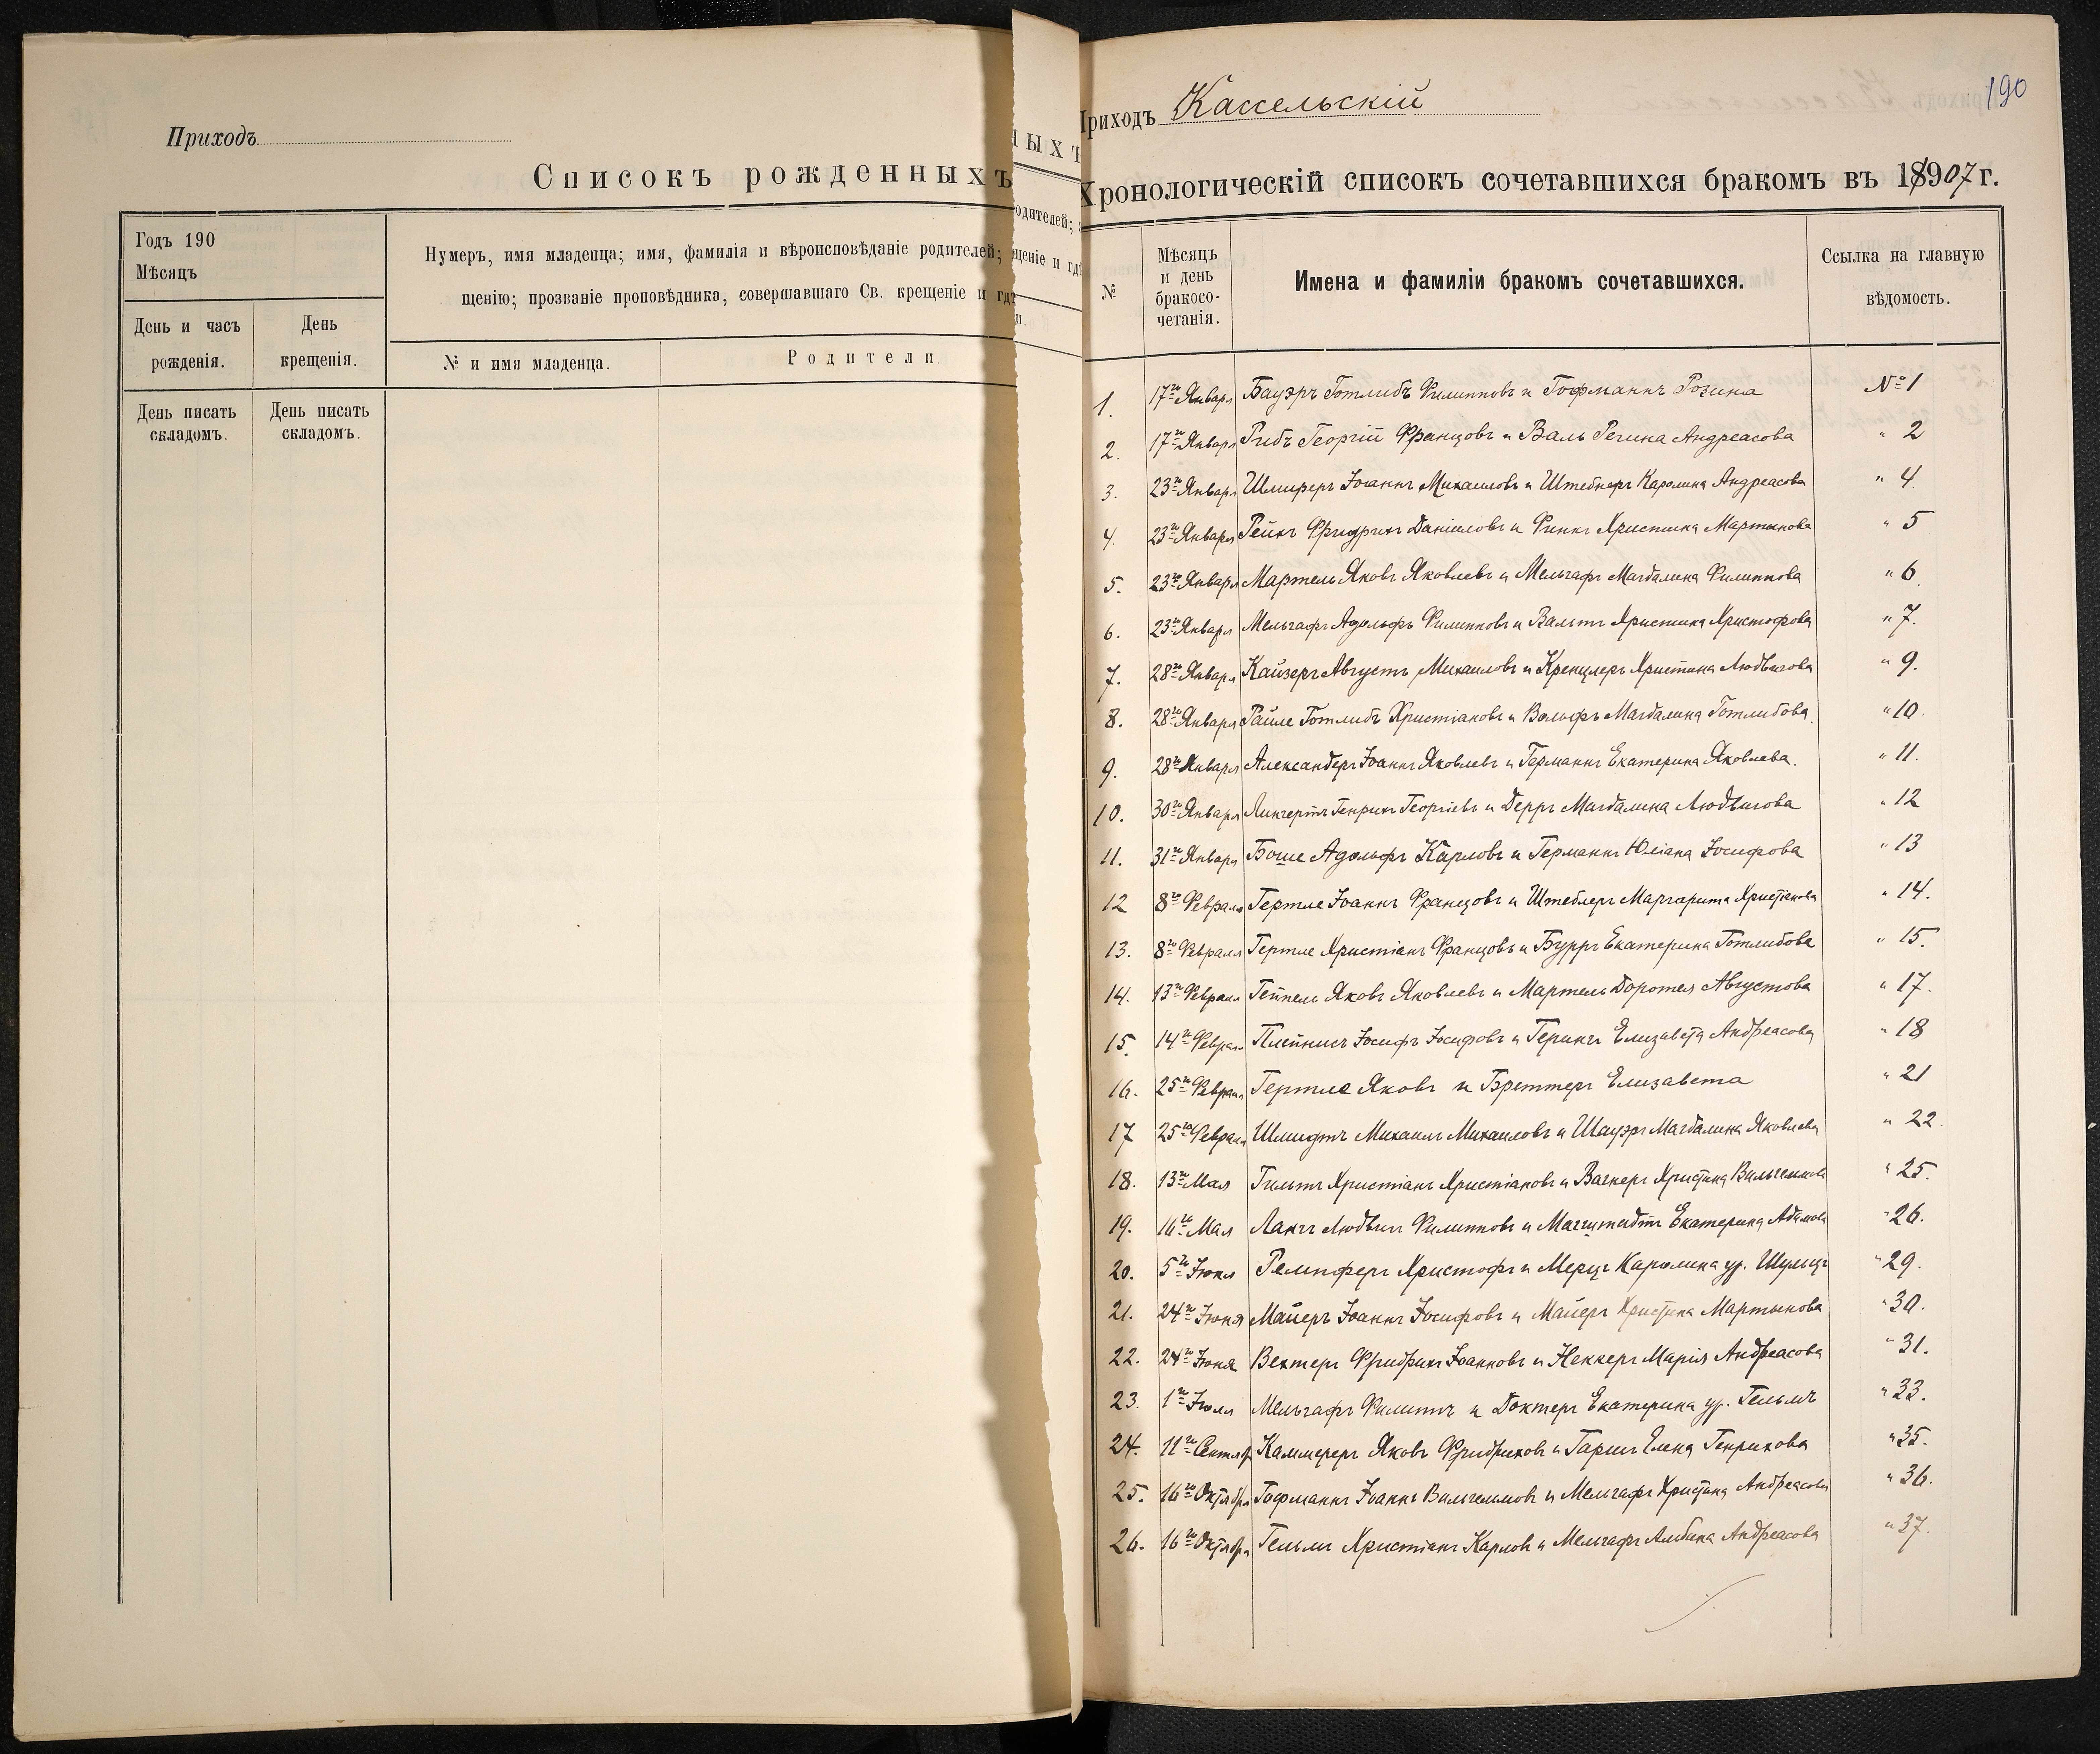 Приходъ
Списокъ рожденныхъ
Годъ 190
Мѣсяцъ
Нумеръ, имя младенца; имя, фамилія и вѣроисповѣданіе родителей;
щенію; прозваніе проповѣдника, совершавшаго Св. крещеніе и гдѣ
День и часъ рожденія.
День крещенія.
№ и имя младенца.
Родители
День писать складомъ.
День писать складомъ.
ныхъ
одителей;
щеніе и гдѣ
Приходъ Кассельскій
190
Хронологическій списокъ сочетавшихся бракомъ въ 18907 г.
№
Мѣсяцъ и день бракосо-четанія.
Имена и фамиліи бракомъ сочетавшихся.
Ссылка на главную вѣдомость.
1. 17го Января Бауэръ Готлибъ Филипповъ и Гофманнъ Розина №1
2. 17го Января Рибъ Георгій Францовъ и Валь Регина Андреасова " 2
3. 23го Января Шлиферъ Іоаннъ Михаиловъ и Штебнеръ Каролина Андреасова " 4
4. 23го Января Рейхъ Фридрихъ Даніиловъ и Финкъ Христина Мартынова " 5
5. 23го Января Мартель Яковъ Яковлевъ и Мельгафъ Магдалина Филиппова " 6.
6. 23го Января Мельгафъ Адольфъ Филипповъ и Вальтъ Христина Христофова " 7.
7. 28го Января Кайзеръ Августъ Михаиловъ и Кренцлеръ Христина Людвигова " 9.
8. 28го Января Райле Готлибъ Христіановъ и Вольфъ Магдалина Готлибова. " 10.
9. 28го Января Александеръ Іоаннъ Яковлевъ и Германнъ Екатерина Яковлева. " 11.
10. 30го Января Генрихъ Георгіевъ и Дерръ Магдалина Людвигова " 12
11. 31го Января Боше Адольфъ Карловъ и Германнъ Юліана Іосифова " 13
12 8го Февраля Гертле Іоаннъ Францовъ и Штеблеръ Маргарита Христіанова " 14.
13. 8го Февраля Гертле Христіанъ Францовъ и Бурръ Екатерина Готлибова " 15.
14. 13го Февраля Геппель Яковъ Яковлевъ и Мартель Доротея Августова " 17.
15. 14го Феврал Іосифъ Іосифовъ и Герингъ Елизавета Андреасова " 18
16. 25го Февраля Гертле Яковъ и Бреттеръ Елизавета " 21
17 25го Февраля Шмидтъ Михаилъ Михаиловъ и Шауэръ Магдалина Яковлева " 22
18. 13го Мая Гильтъ Христіанъ Христіановъ и Вагнеръ Христина Вильгельмова " 25.
19. 16го Мая Лангъ Людвигъ Филипповъ и Екатерина Адамова " 26.
20. 5го Іюня Ремпферъ Христофъ и Мерцъ Каролина ур. Шульцъ " 29.
21. 24го Іюня Майеръ Іоаннъ Іосифовъ и Майеръ Христина Мартынова " 30.
22. 24го Іюня Вехтеръ Фридрихъ Іоанновъ и Неккеръ Марія Андреасова " 31.
23. 1го Іюля Мельгафъ Филиппъ и Доктеръ Екатерина ур. Гельмъ " 33.
24. 11го Сентябр Каммереръ Яковъ Фридриховъ и Елена Генрихова " 35.
25. 16го Октября Гофманнъ Іоаннъ Вильгельмовъ и Мельгафъ Христина Андреасова " 36.
26. 16го Октября Гельмъ Христіанъ Карловъ и Мельгафъ Альбина Андреасова " 37.